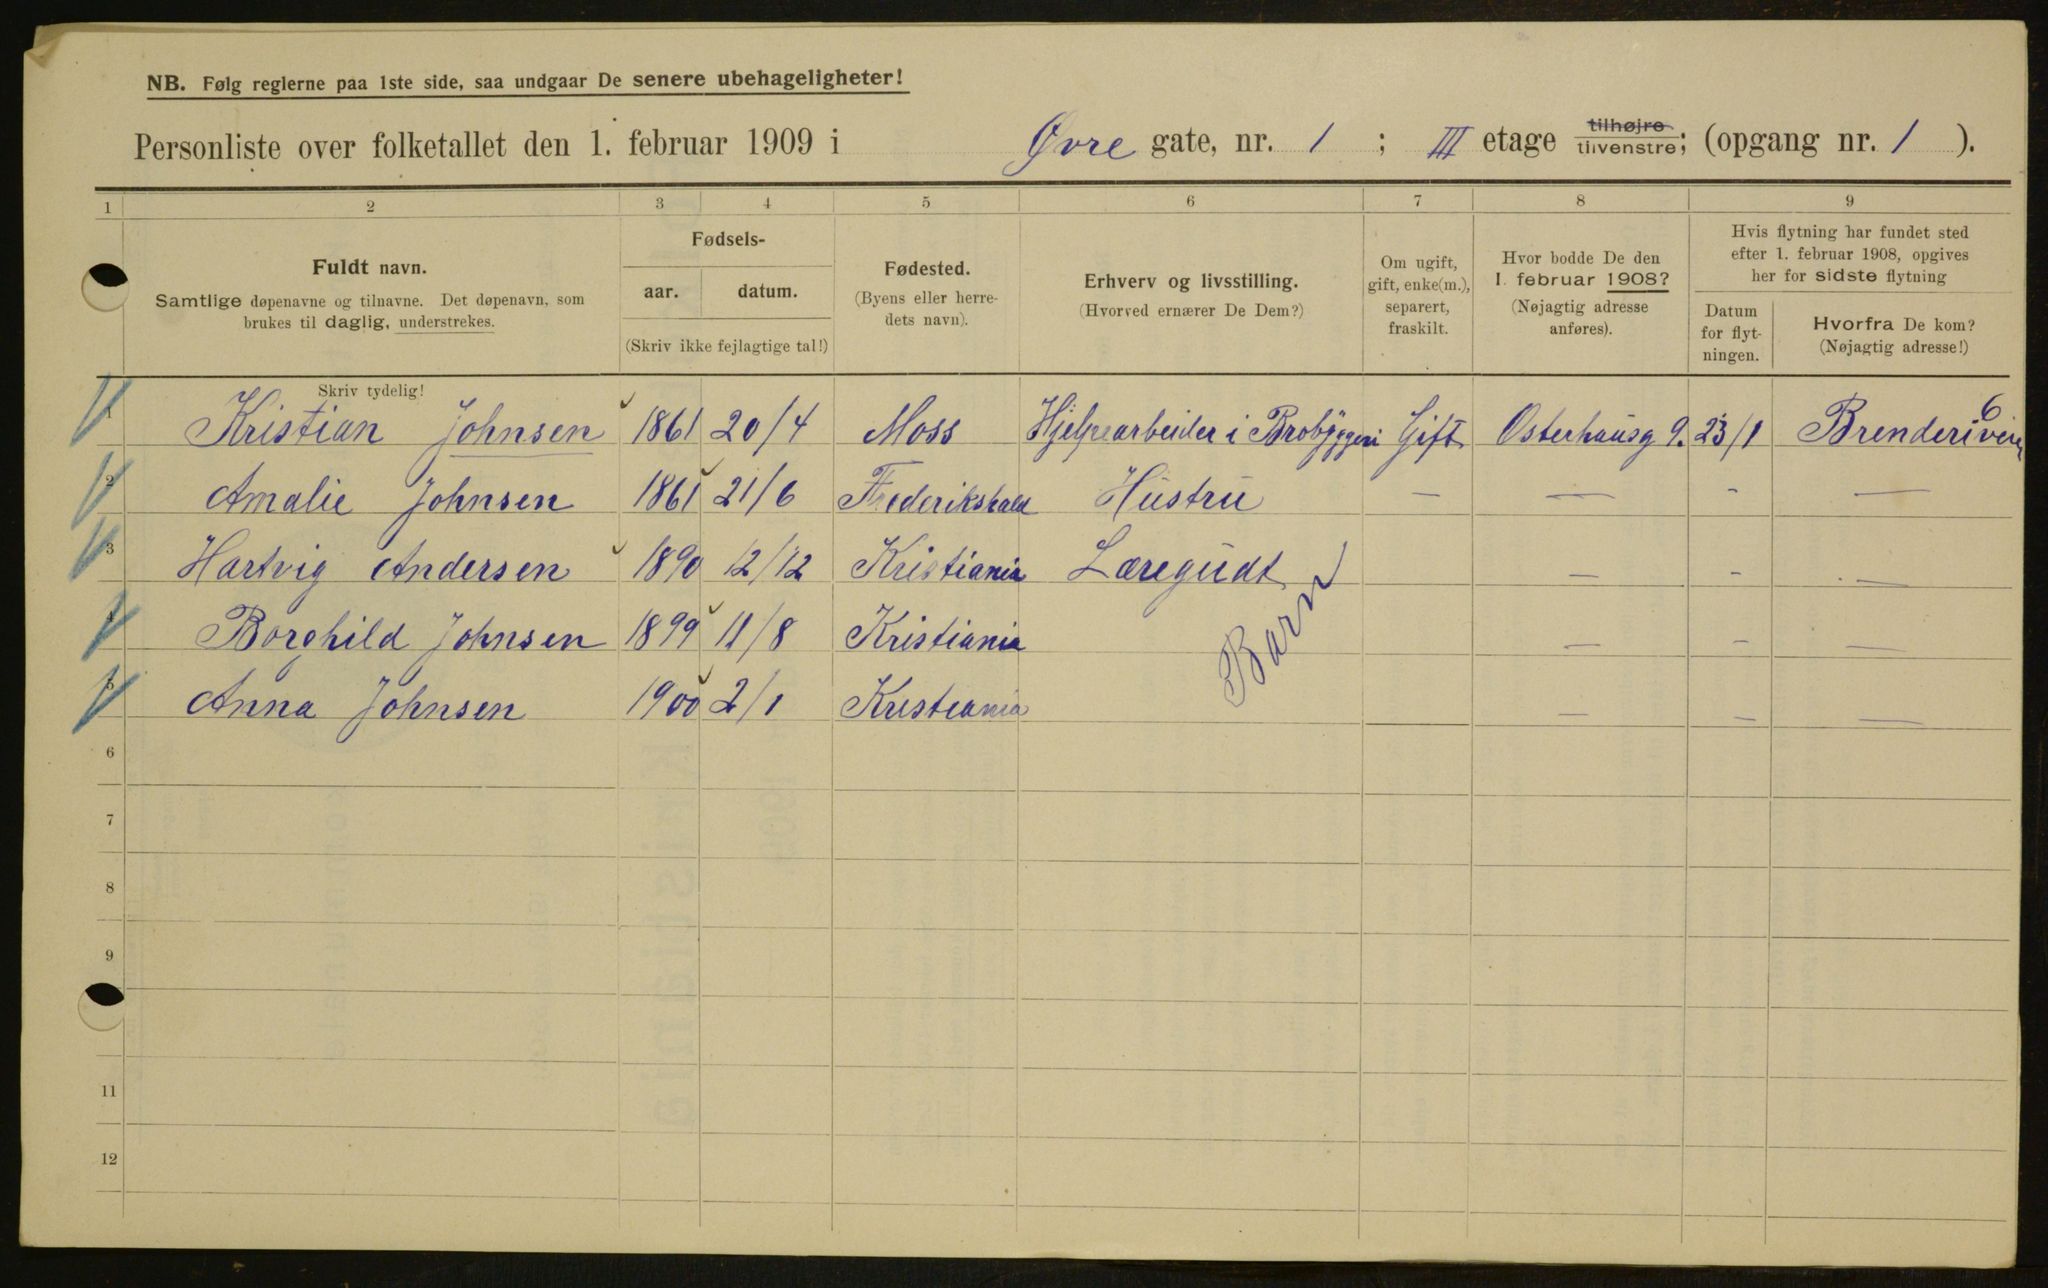 NB. Følg reglerne paa 1ste side, saa undgaar De senere ubehageligheter!
Personliste over folketallet den 1. februar 1909 i Øvre gate, nr. 1 ; III etage tilhøjre tilvenstre; (opgang nr. 1 ).
1 2 3 4 5 6 7 8 9
Fuldt navn.
Samtlige døpenavne og tilnavne. Det døpenavn, som
brukes til daglig, understrekes.
Fødsels-
aar. datum.
(Skriv ikke fejlagtige tal!)
Fødested.
(Byens eller herre-
dets navn).
Erhverv og livsstilling.
(Hvorved ernærer De Dem?)
Om ugift,
gift, enke(m.),
separert,
fraskilt.
Hvor bodde De den
1. februar 1908?
(Nøjagtig adresse
anføres).
Hvis flytning har fundet sted
efter 1. februar 1908, opgives
her for sidste flytning
Datum
for flyt-
ningen.
Hvorfra De kom?
(Nøjagtig adresse!)
Skriv tydelig!
1 Kristian Johnsen 1861 20/4 Moss Hjelpearbeider i Brobyggeri Gift Osterhausg 9. 23/1 Brenderiveien 6
2 Amalie Johnsen 1861 21/6 Frederikshald Hustru — — - —
3 Hartvig Andersen 1890 12/12 Kristiania Læregudt — - —
4 Borghild Johnsen 1899 11/8 Kristiania Barn — - —
5 Anna Johnsen 1900 2/1 Kristiania — - —
6
7
8
9
11
12